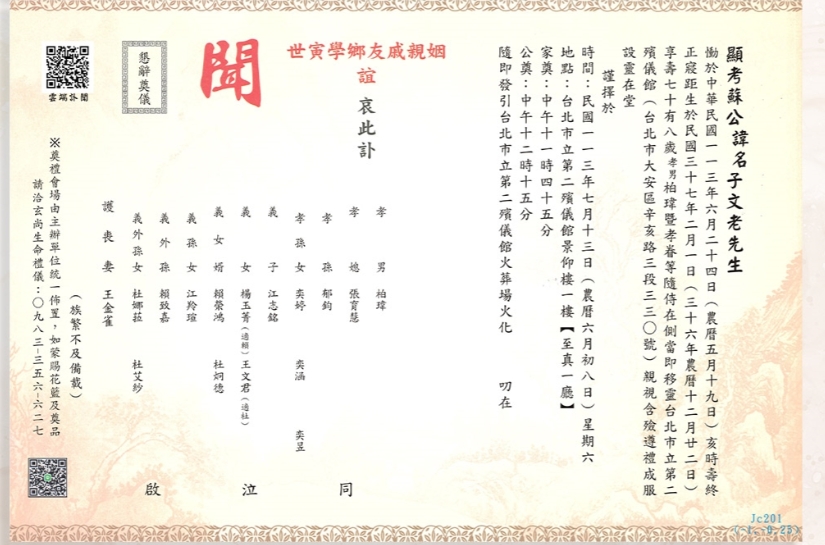 顯考蘇公諱名子文老先生
慟於中華民國一一三年六月二十四日（農曆五月十九日）亥時壽終
正寢距生於民國三十七年二月一日（三十六年農曆十二月廿二日）
享壽七十有八歲孝男柏瑋暨孝眷等隨侍在側當即移靈台北市立第二
殯儀館（台北市大安區辛亥路三段三三〇號）親視含殮遵禮成服
設靈在堂
謹擇於
時間：民國一一三年七月十三日（農曆六月初八日）星期六
地點：台北市立第二殯儀館景仰樓一樓【至真一廳】
家奠：中午十一時四十五分
公奠：中午十二時十五分
隨即發引台北市立第二殯儀館火葬場火化 叨在
姻親戚友鄉學寅世
誼
哀此訃
聞
懇辭奠儀
雲端訃聞
孝男 柏瑋
孝媳 張育慧
孝孫 郁鈞
孝孫女 奕婷 奕涵 奕昱
義子 江志銘
義女 楊玉菁（適賴） 王文君（適杜）
義女婿 賴榮鴻 杜炯德
義孫女 江羚瑄
義外孫 賴致嘉
義外孫女 杜娜菈 杜艾紗
護喪妻 王金雀
同
泣
啟
（族繁不及備載）
※奠禮會場由主辦單位統一佈置，如蒙賜花籃及奠品
請洽玄尚生命禮儀：〇九八三-三五六-六二七
Jc201